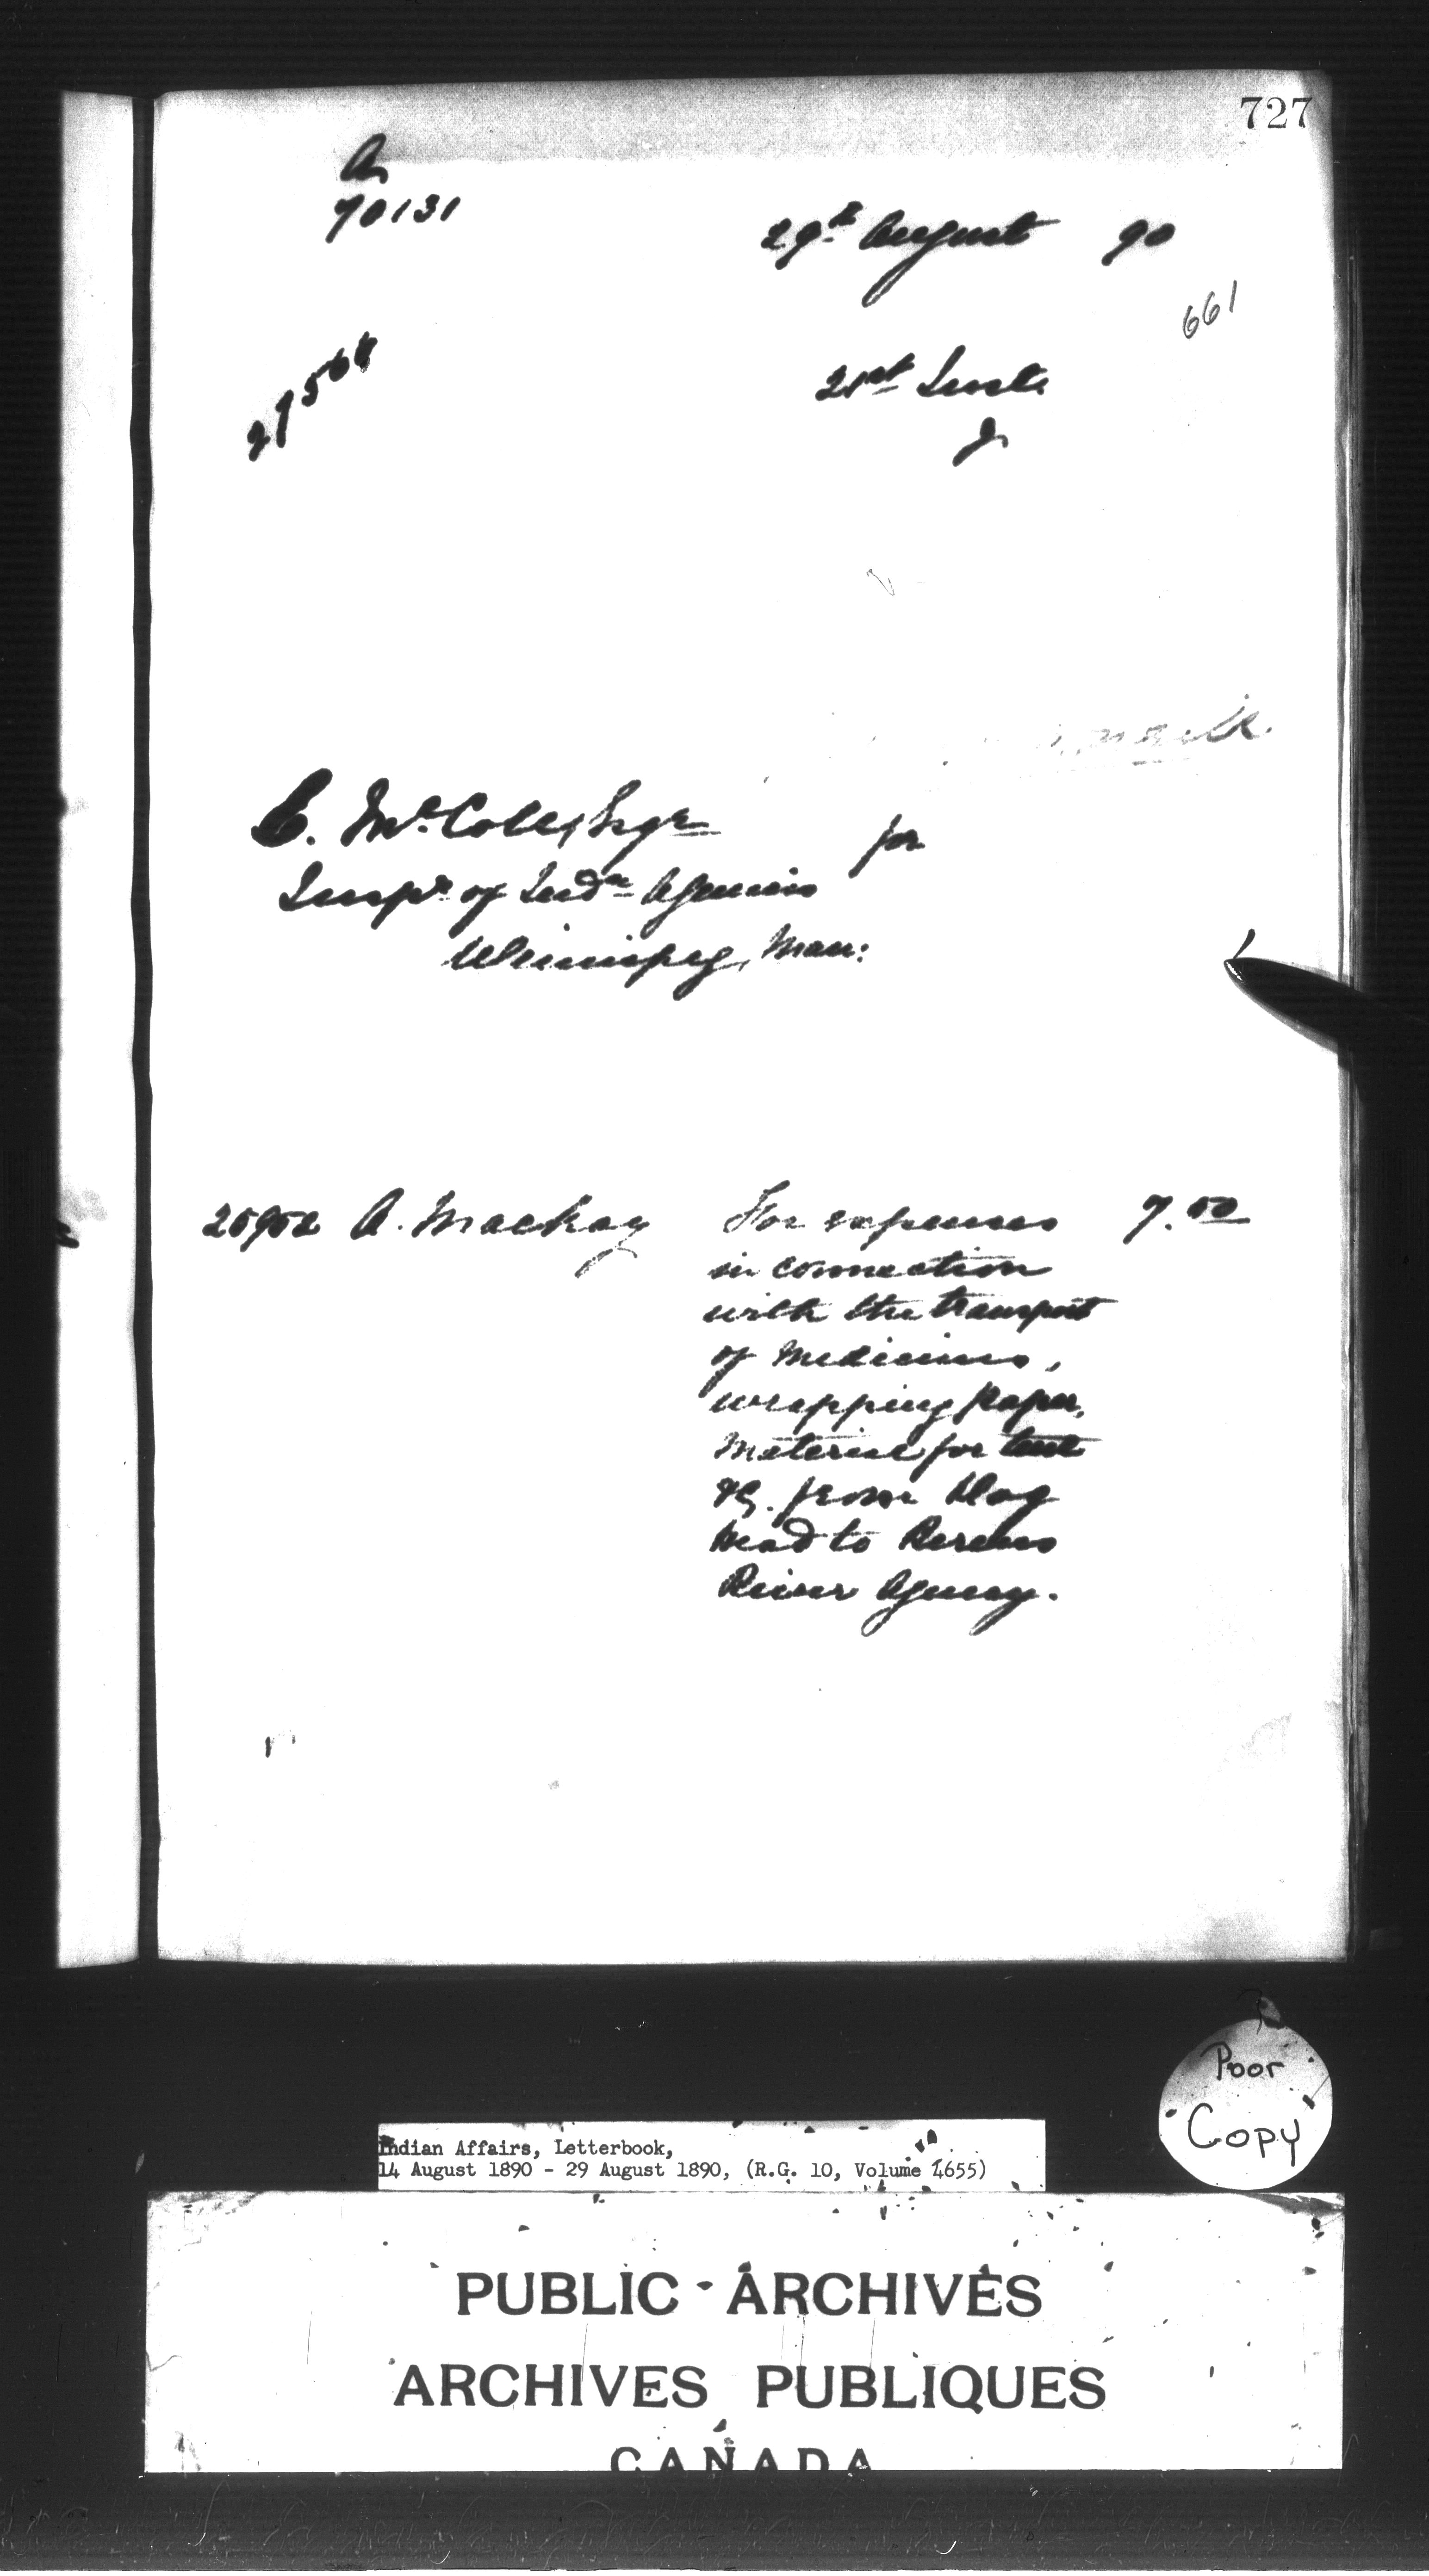 727
A.
70131
29th August 90
661
21st Inst.
E. McColl, Esqre
for
Inspr. of Indn Agencies
Winnipeg, Man:
25952 A. Mackay For expenses 7.50
in connection
with the transport
of medicines,
wrapping paper,
material for tent
&c. from Dog
Head to Berens
River Agency.
Poor
Copy
Indian Affairs, Letterbook,
14 August 1890 - 29 August 1890, (R.G. 10, Volume 4655)
PUBLIC ARCHIVES
ARCHIVES PUBLIQUES
CANADA